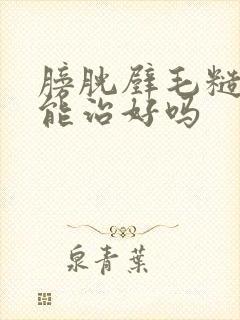 膀胱壁毛糙
能治好吗
泉青葉